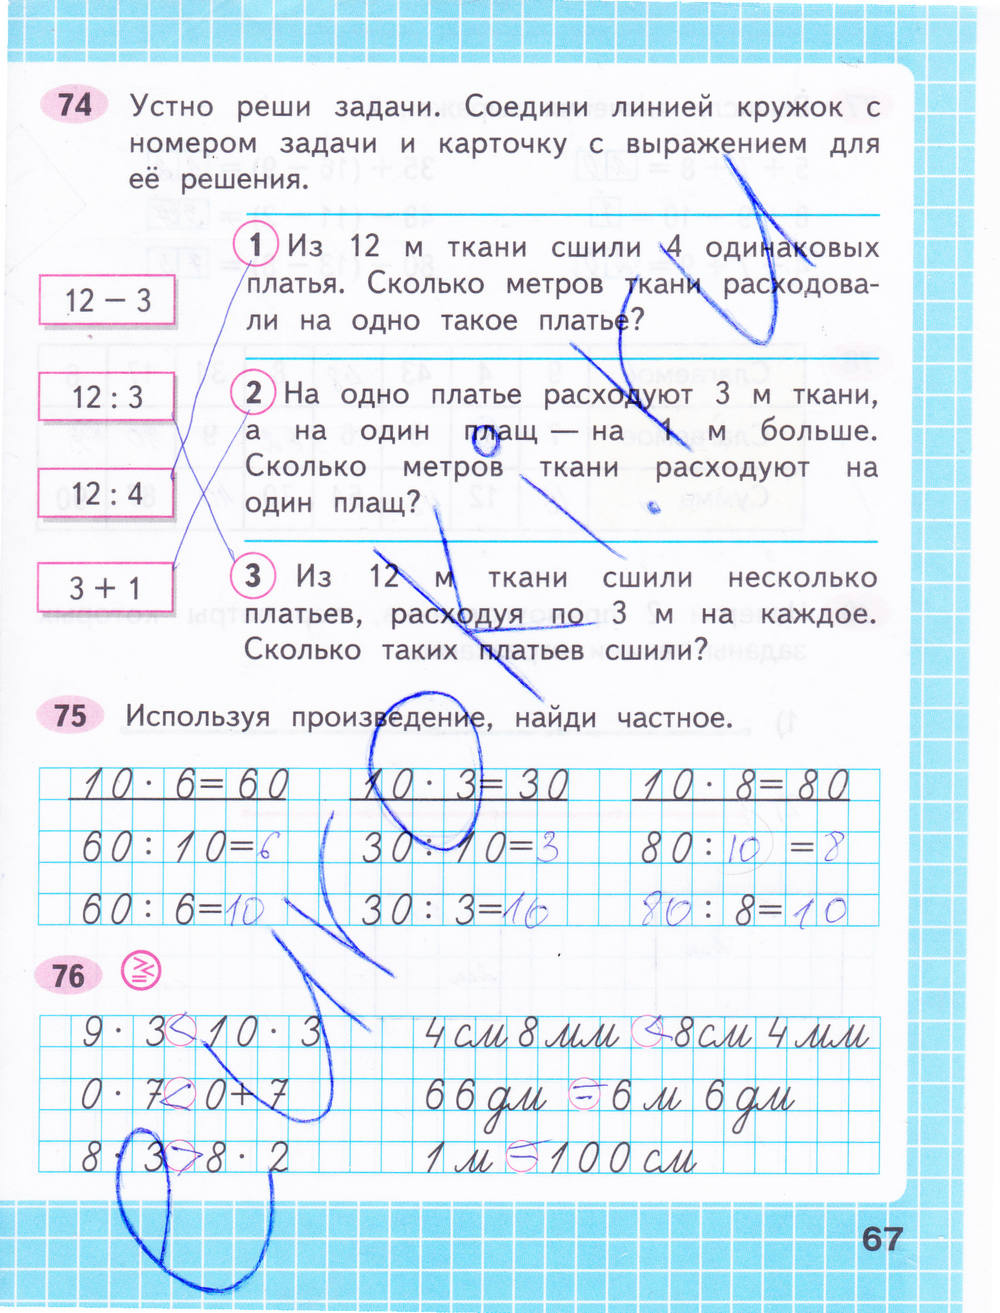 74 Устно реши задачи. Соедини линией кружок с
номером задачи и карточку с выражением для
её решения.
1 Из 12 м ткани сшили 4 одинаковых
платья. Сколько метров ткани расходова-
ли на одно такое платье?
12 − 3
12 : 3
12 : 4
3 + 1
2 На одно платье расходуют 3 м ткани,
а на один плащ — на 1 м больше.
Сколько метров ткани расходуют на
один плащ?
3 Из 12 м ткани сшили несколько
платьев, расходуя по 3 м на каждое.
Сколько таких платьев сшили?
75 Используя произведение, найди частное.
10 · 6 = 60 10 · 3 = 30 10 · 8 = 80
60 : 10 = 6 30 : 10 = 3 80 : 10 = 8
60 : 6 = 10 30 : 3 = 10 80 : 8 = 10
76
9 · 3 < 10 · 3 4 см 8 мм < 8 см 4 мм
0 · 7 < 0 + 7 66 дм = 6 м 6 дм
8 · 3 > 8 · 2 1 м = 100 см
67